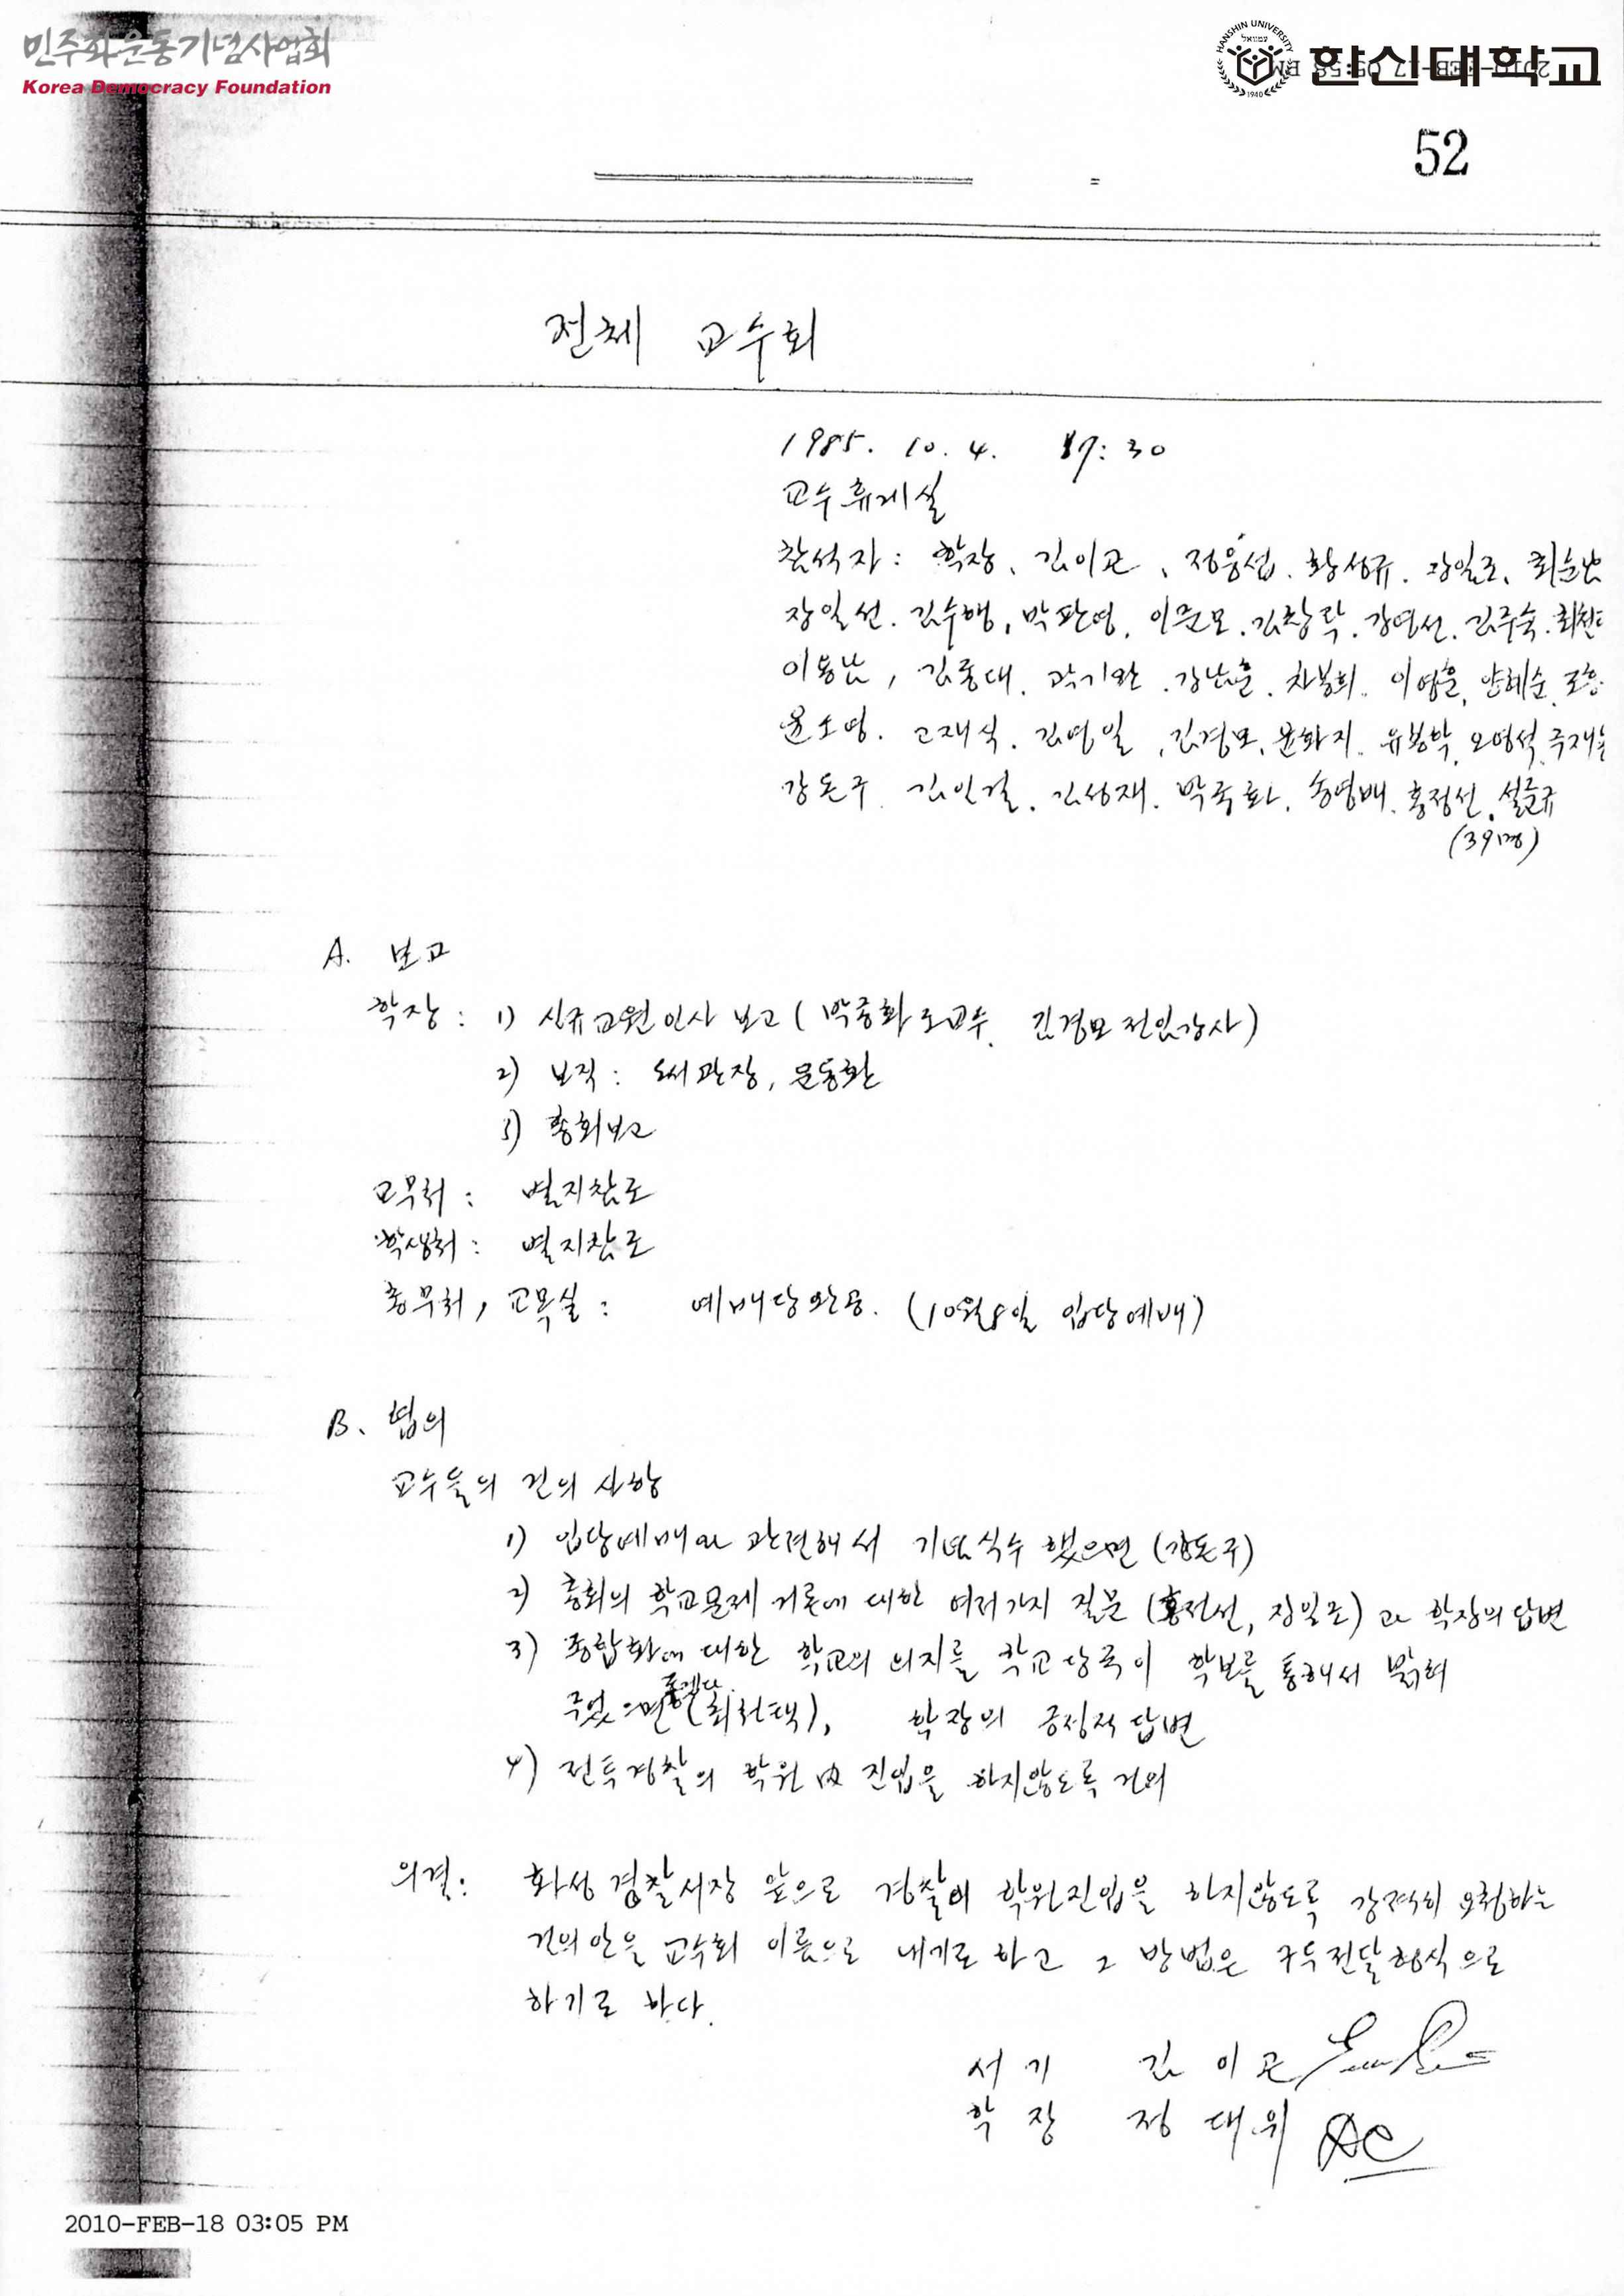 민주화운동기념사업회
Korea Democracy Foundation
HANSHIN UNIVERSITY
1940
한신대학교
52
전체 교수회
1985. 10. 4. 17:30
교수휴게실
참석자 : 학장, 김이곤, 정웅섭. 황성규. 장일조, 최순남
장일선. 김수행, 박판영, 이준모. 김창락. 강영선. 김주숙.
이용남, 김종대. 곽기완. 강남훈. 차봉희. 이영훈, 안혜순.
윤소영. 고재식. 김영일, 김경모, 윤화지. 유봉학, 오영석,
강돈구. 김인걸. 김성재. 박종화. 송영배. 홍정선. 설준규
(39명)
A. 보고
학장 : 1) 신규교원인사 보고 ( 박종화 조교수, 김경모 전임강사)
2) 보직 : 도서관장, 문동환
3) 총회보고
교무처 : 별지참조
학생처 : 별지참조
총무처, 교목실 : 예배당완공. (10월8일 입당예배)
B. 협의
교수들의 건의 사항
1) 입당예배와 관련해서 기념식수 했으면 (강돈구)
2) 총회의 학교문제 거론에 대한 여러가지 질문 (홍정선, 장일조) 과 학장의 답변
3) 종합화에 대한 학교의 의지를 학교당국이 학보를 통해서 밝혀
주었으면 좋겠다 (최천택), 학장의 긍정적 답변
4) 전투경찰의 학원 內 진입을 하지않도록 건의
의결: 화성경찰서장 앞으로 경찰이 학원진입을 하지않도록 강력히 요청하는
건의안을 교수회 이름으로 내기로 하고 그 방법은 구두전달형식으로
하기로 하다.
서기 김이곤
학장 정대위
2010-FEB-18 03:05 PM